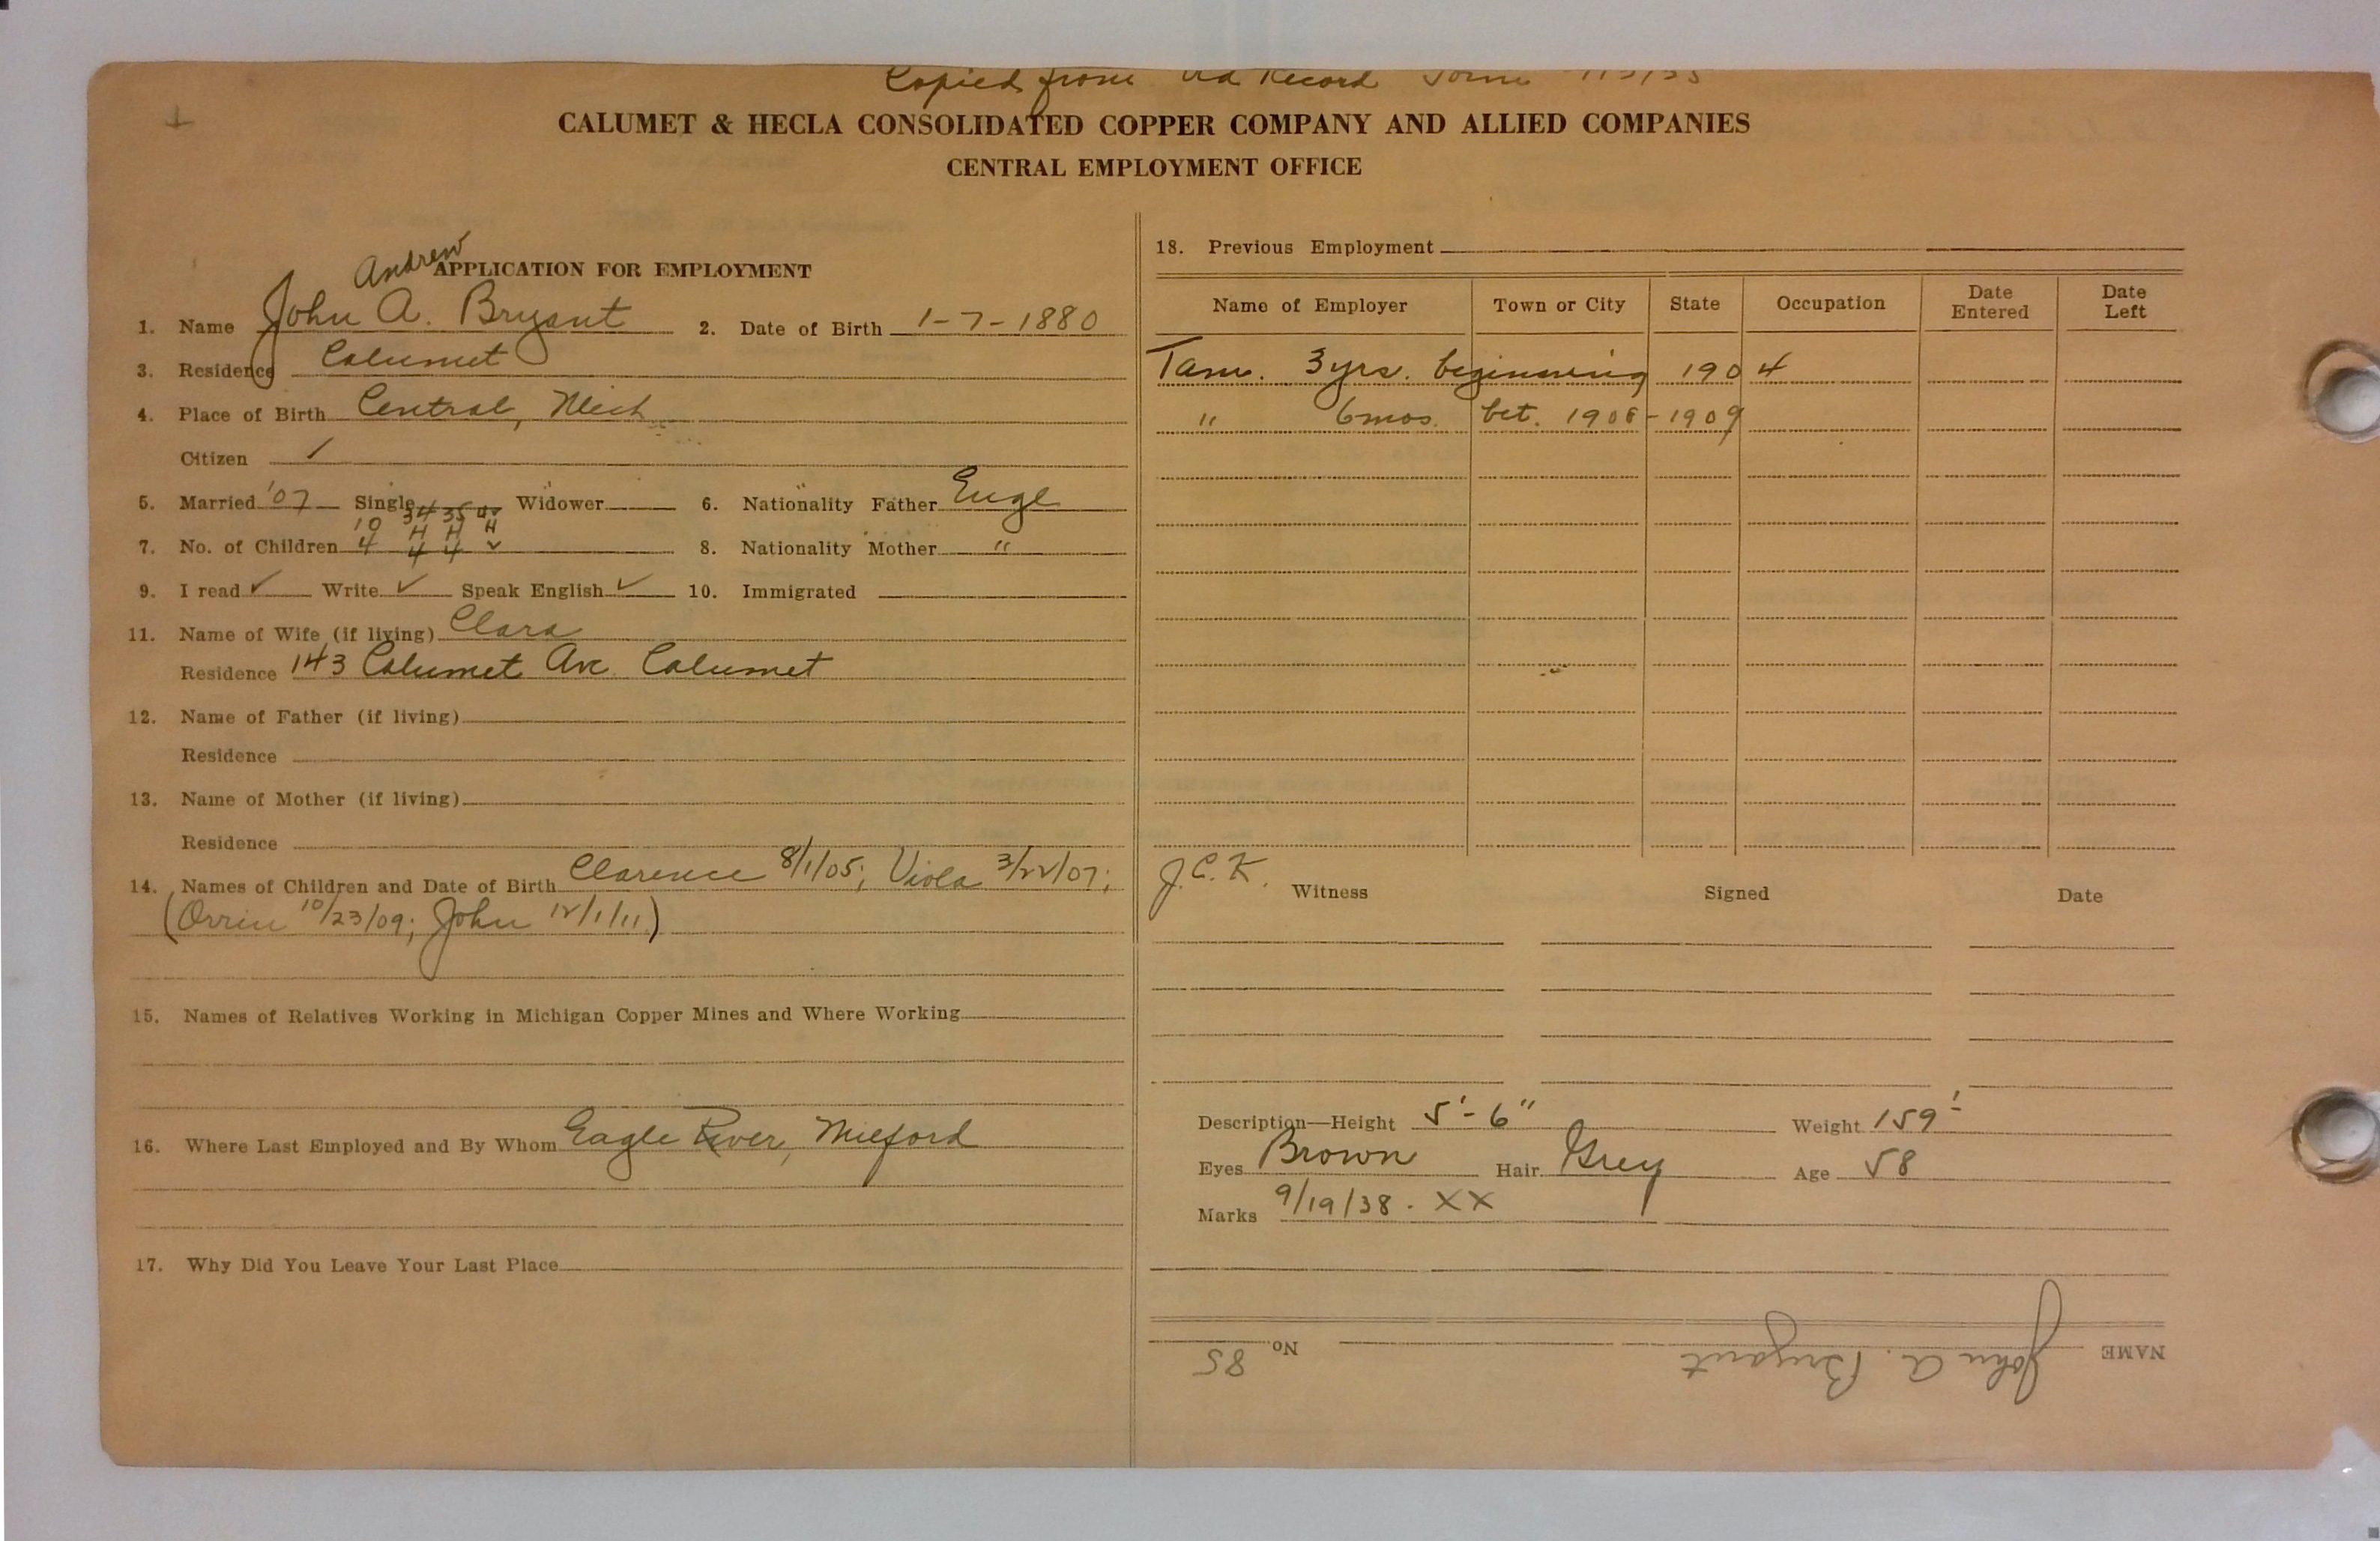 Copied from Old Record Form
CALUMET & HECLA CONSOLIDATED COPPER COMPANY AND ALLIED COMPANIES
CENTRAL EMPLOYMENT OFFICE
APPLICATION FOR EMPLOYMENT
Andrew
1. Name John A. Bryant 2. Date of Birth 1-7-1880
3. Residence Calumet
4. Place of Birth Central, Mich
Citizen /
5. Married '07 Single 34 35 Widower 6. Nationality Father Engl
10 H H H
7. No. of Children 4 4 4 ✓ 8. Nationality Mother "
9. I read ✓ Write ✓ Speak English ✓ 10. Immigrated
11. Name of Wife (if living) Clara
Residence 143 Calumet Ave Calumet
12. Name of Father (if living)
Residence
13. Name of Mother (if living)
Residence
14. Names of Children and Date of Birth Clarence 8/1/05; Viola 3/22/07;
(Orrin 10/23/09; John 12/1/11)
15. Names of Relatives Working in Michigan Copper Mines and Where Working
16. Where Last Employed and By Whom Eagle River, Milford
17. Why Did You Leave Your Last Place
18. Previous Employment
Name of Employer Town or City State Occupation Date Entered Date Left
Tam. 3 yrs. beginning 1904
" 6 mos. bet. 1908-1909
J.C.K.
Witness Signed Date
Description—Height 5'-6" Weight 159'
Eyes Brown Hair Grey Age 58
Marks 9/19/38 - XX
NAME John A. Bryant No. 85